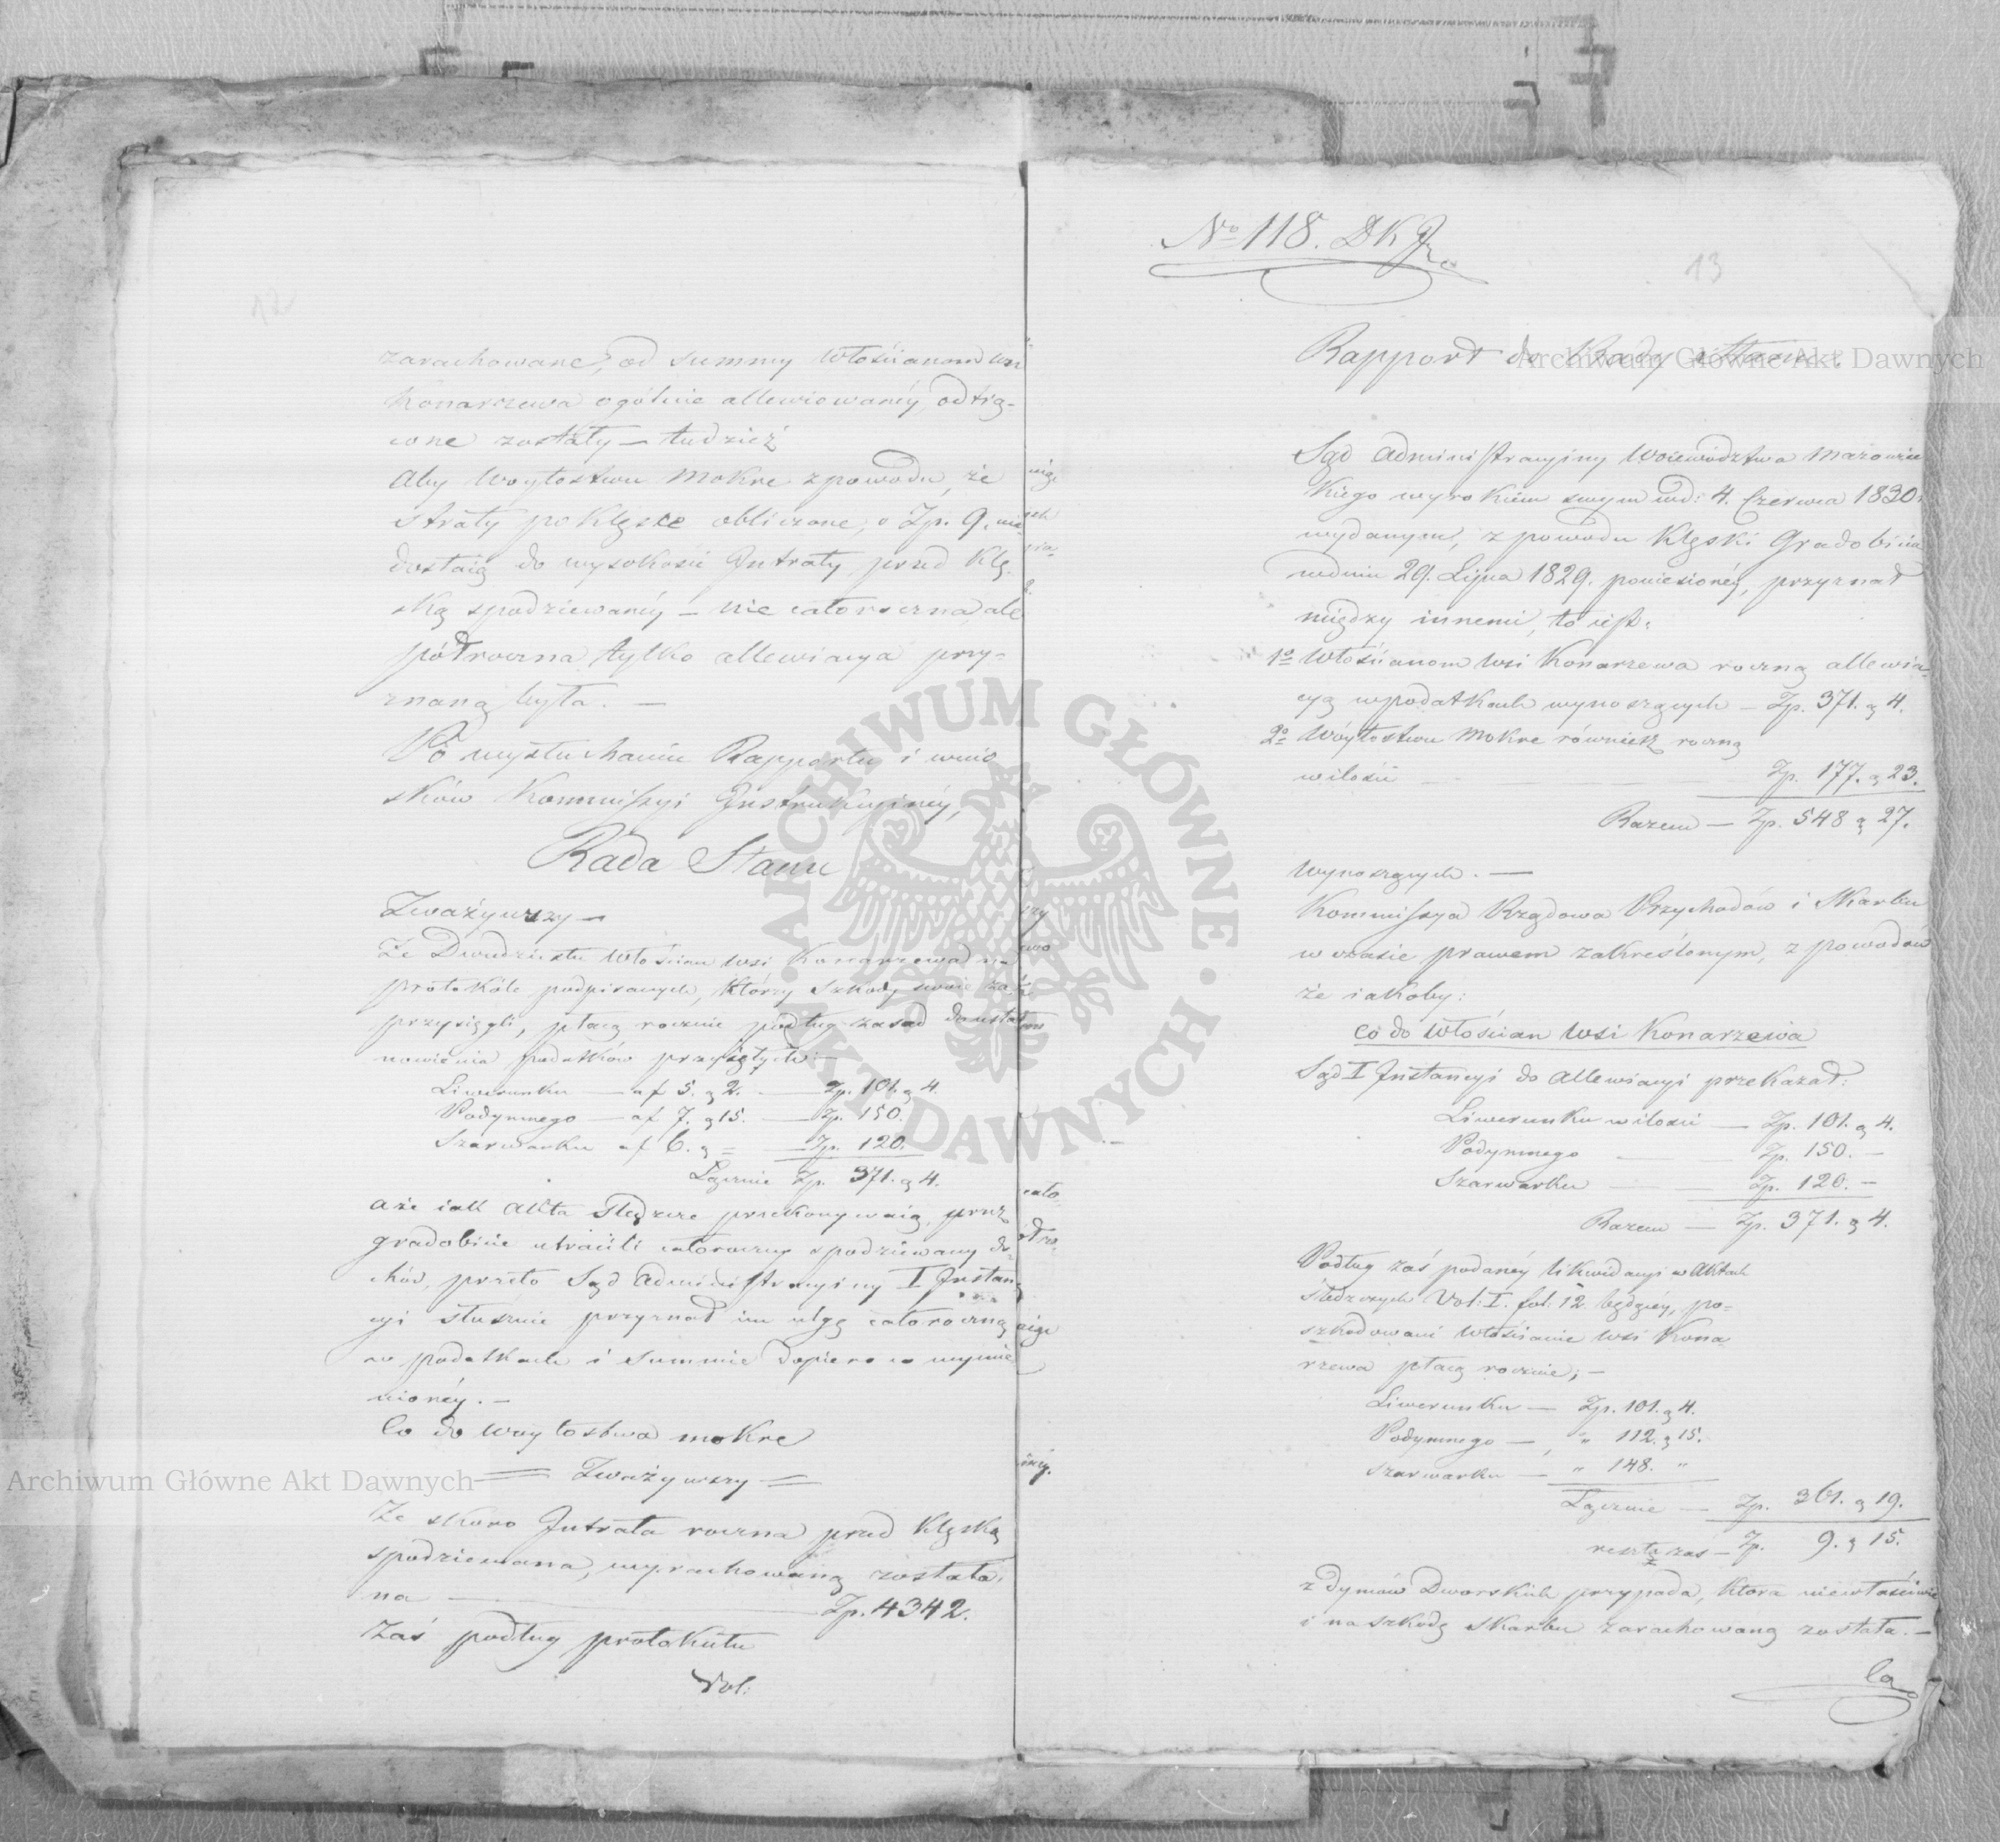 12
zarachowane, od summy Włościanom wsi
Konarzewa ogólnie allewiowanéy, odtrą-
cone zostały – tudzież
Aby Woytostwu Mokre z powodu, że
straty po Klęsce obliczone, o Zp. 9, nie
dostaią do wysokości Intraty, przed Klę-
ską spodziewanéy – nie całoroczna, ale
półroczna tylko allewiacya przy-
znaną była. –
Po wysłuchaniu Rapportu i wnio
sków Kommissyi Instrukcyinéy,
Rada Stanu
Zważywszy –
Że Dwudziestu Włościan wsi Konarzewa na
protokóle podpisanych, którzy szkody swoie za-
przysięgli, płacą rocznie podług zasad do usta
nowienia podatków przyiętych: –
Liwerunku – af 5. g 2. – Zp. 101. g 4.
Podymnego – af 7. g 15. – Zp. 150.
Szarwarku af 6. g = – Zp. 120.
Łącznie Zp. 371. g 4.
a że iak Akta śledcze przekonywaią, przez
gradobicie utracili całoroczny spodziewany do-
chód, przeto Sąd Administracyiny I Instan-
cyi słusznie przyznał im ulgę całoroczną
w podatkach i summie dopiero co wymie
nionéy. –
Co do Woytostwa Mokre
= Zważywszy =
Że skoro Intrata roczna przed klęską
spodziewana, wyrachowaną została,
na – Zp. 4342.
Zaś podług protokułu
Vol:
No 118. DKJ
13
Rapport do Rady Stanu.
Sąd Administracyiny Województwa Mazowiec
kiego wyrokiem swym w d: 4. Czerwca 1830.
wydanym, z powodu Klęski Gradobicia
w dniu 29. Lipca 1829. poniesionéy, przyznał
między innemi, to iest:
1o Włościanom wsi Konarzewa roczną allewia-
cyą w podatkach wynoszących – Zp. 371. g 4.
2o Wóytostwu Mokre również roczną
w ilości – Zp. 177. g 23.
Razem – Zp. 548 g 27.
wynoszących. –
Kommissya Rządowa Przychodów i Skarbu
w czasie prawem zakreślonym, z powodów
że iakoby:
Co do Włościan wsi Konarzewa
Sąd I Instancyi do Allewiacyi przekazał:
Liwerunku w ilości – Zp. 101. g 4.
Podymnego – Zp. 150. –
Szarwarku – Zp. 120. –
Razem – Zp. 371. g 4.
Podług zaś podanéy likwidacyi w Aktach
śledczych Vol: I. fol: 12. będącéy, po-
szkodowani Włościanie wsi Kona
rzewa płacą rocznie; –
Liwerunku – Zp. 101. g 4.
Podymnego – " 112. g 15.
Szarwarku – " 148. "
Łącznie – Zp. 361. g 19.
reszta zaś – Zp. 9. g 15.
z dymów Dworskich przypada, która niewłaściwie
i na szkodę Skarbu zarachowaną została. –
Co
Archiwum Główne Akt Dawnych
Archiwum Główne Akt Dawnych
ARCHIWUM GŁÓWNE · AKT DAWNYCH ·